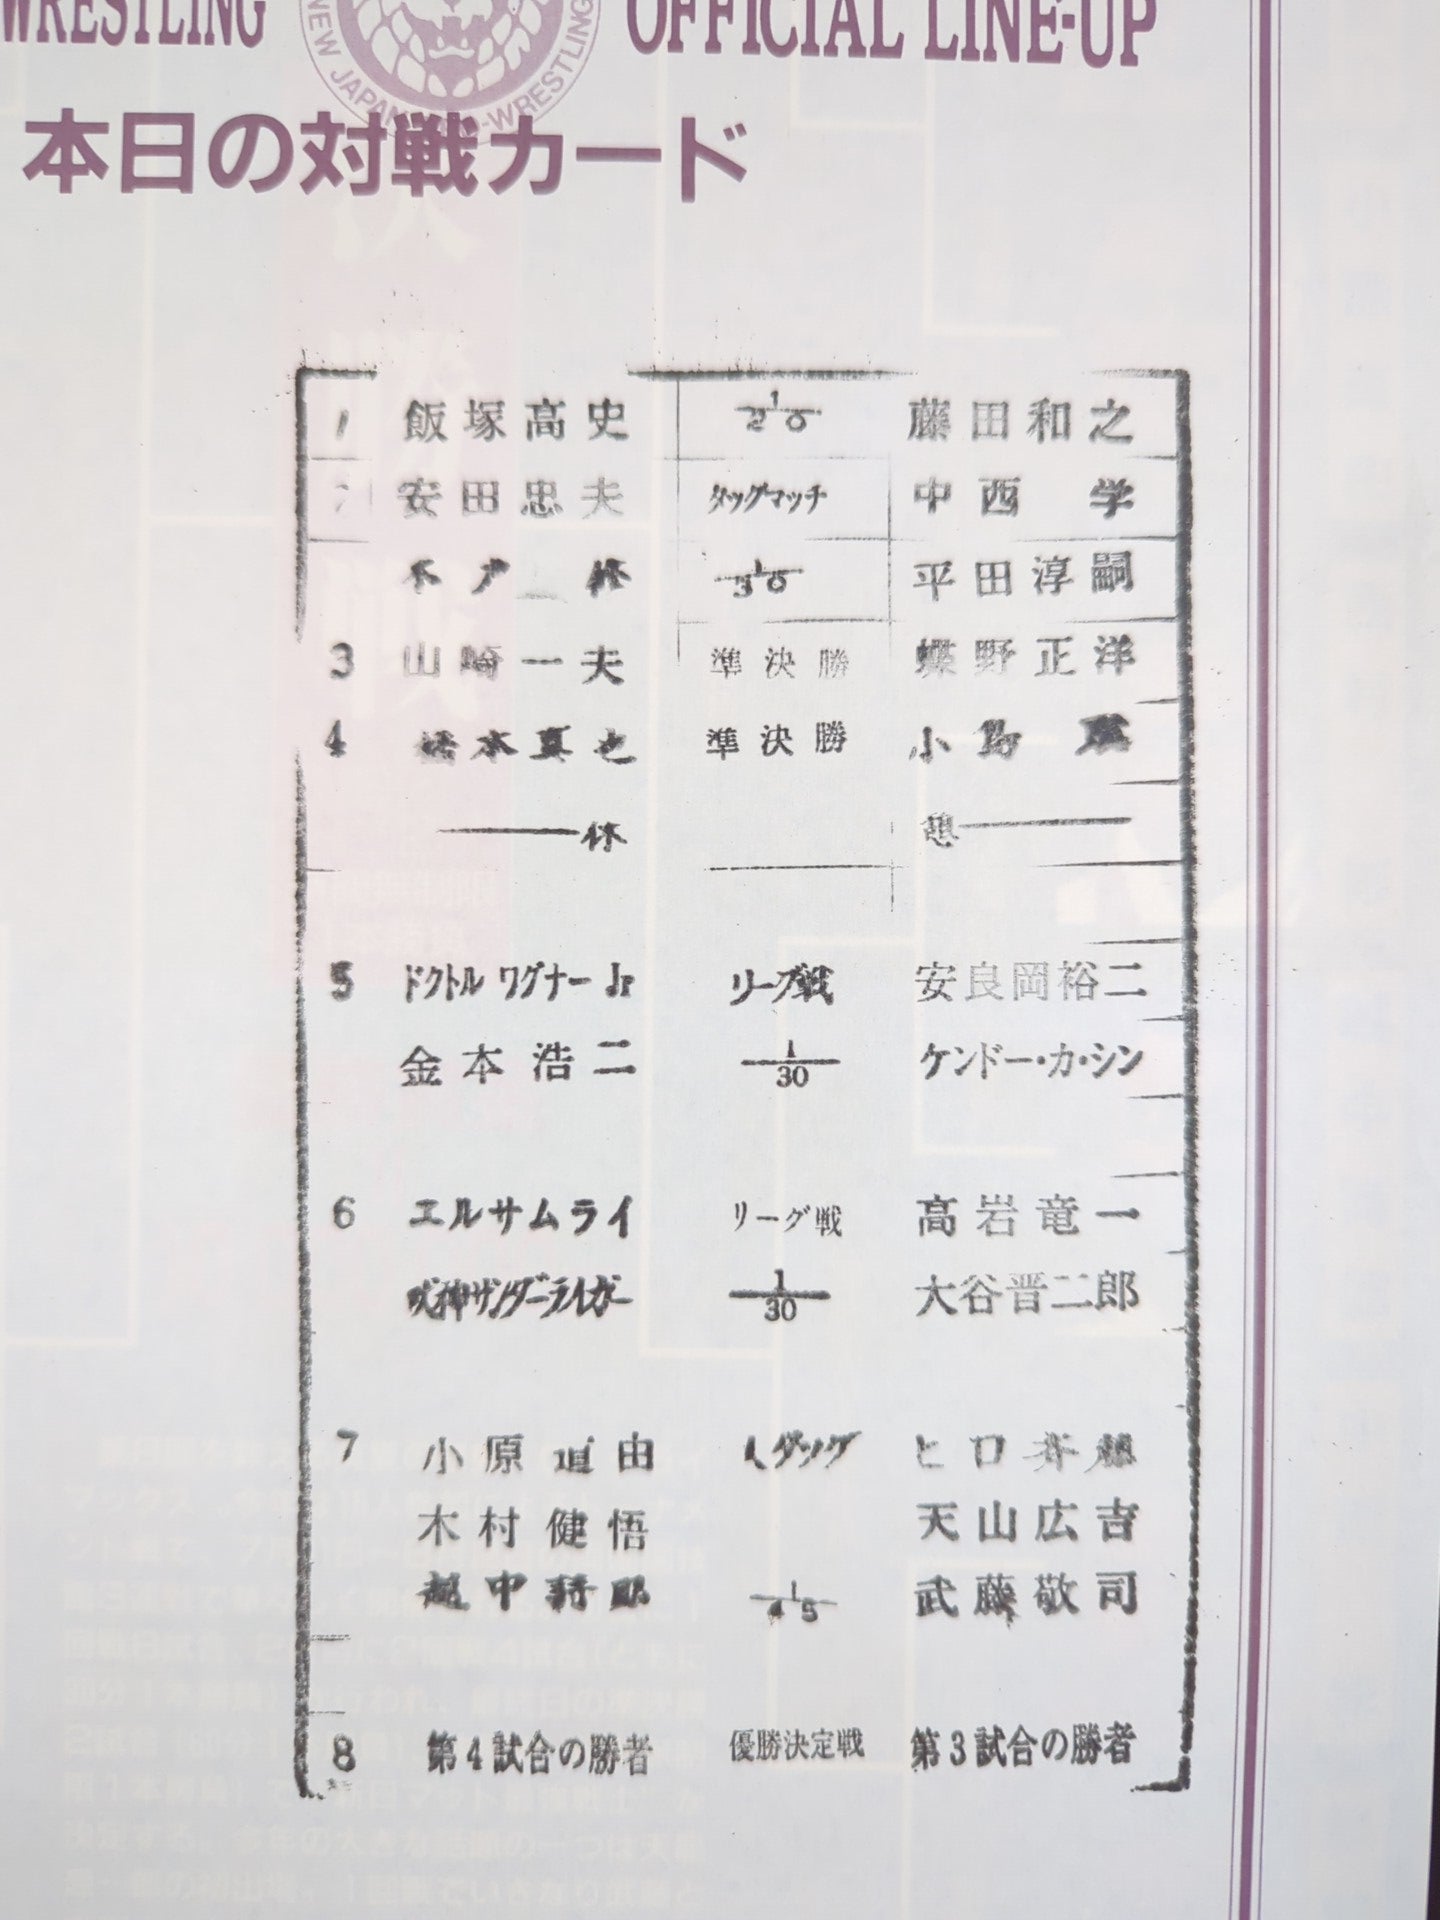 WRESTLING OFFICIAL LINE-UP
NEW JAPAN PRO-WRESTLING
本日の対戦カード
1 飯塚高史 1/20 藤田和之
2 安田忠夫 タッグマッチ 中西 学
木戸 修 1/30 平田淳嗣
3 山崎一夫 準決勝 蝶野正洋
4 橋本真也 準決勝 小島 聡
休 憩
5 ドクトル ワグナー Jr リーグ戦 安良岡裕二
金本浩二 1/30 ケンドー・カ・シン
6 エルサムライ リーグ戦 高岩竜一
獣神サンダーライガー 1/30 大谷晋二郎
7 小原道由 6人タッグ ヒロ斉藤
木村健悟 天山広吉
越中詩郎 1/45 武藤敬司
8 第4試合の勝者 優勝決定戦 第3試合の勝者